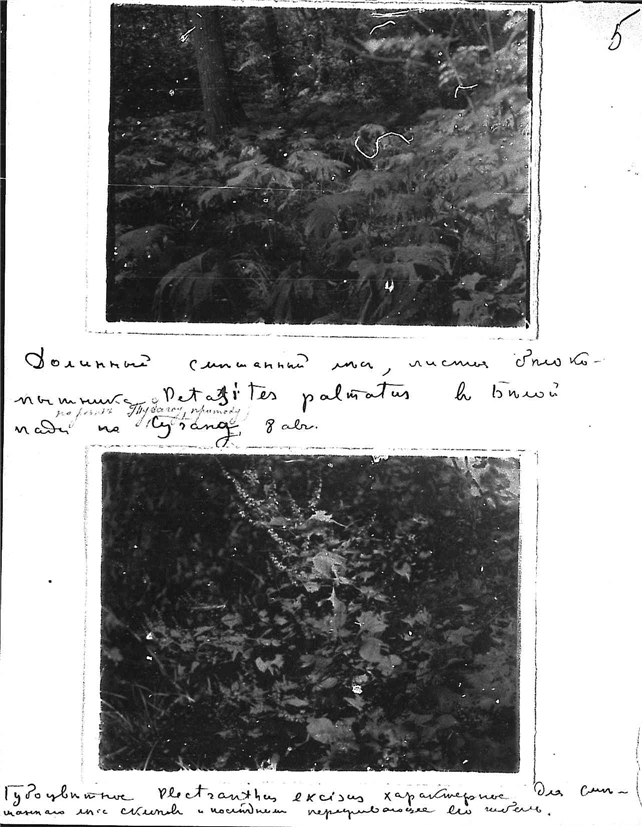 5
Долинный смешанный лес, листья белоко-
пытника Petasites palmatus в Белой
по речке протоку
пади на 8 авг.
Губоцветное Plectranthus excisus характерное для сме-
шанного леса склонов и постоянно его